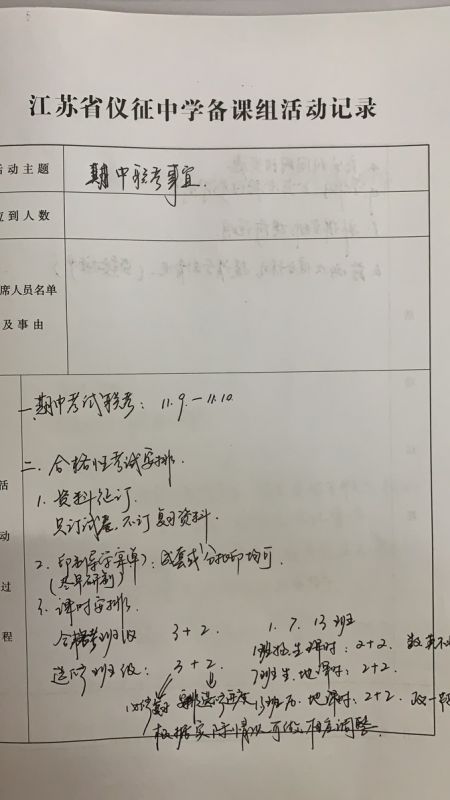 江苏省仪征中学备课组活动记录
活动主题
期中联考事宜.
应到人数
席人员名单
及事由
一.期中考试联考: 11.9.—11.10.
二.合格性考试安排.
活
动
过
程
1. 资料征订.
只订试卷,不订复习资料.
2. 印制导学案单): 成套或分批印均可.
(尽早研制)
3. 课时安排:
合格考班级 3+2. 1. 7. 13班
选修班级: 3+2. 1班 生课时: 2+2.
7班生.地课时: 2+2.
13班 地课时: 2+2.
根据实际情况可做 调整.